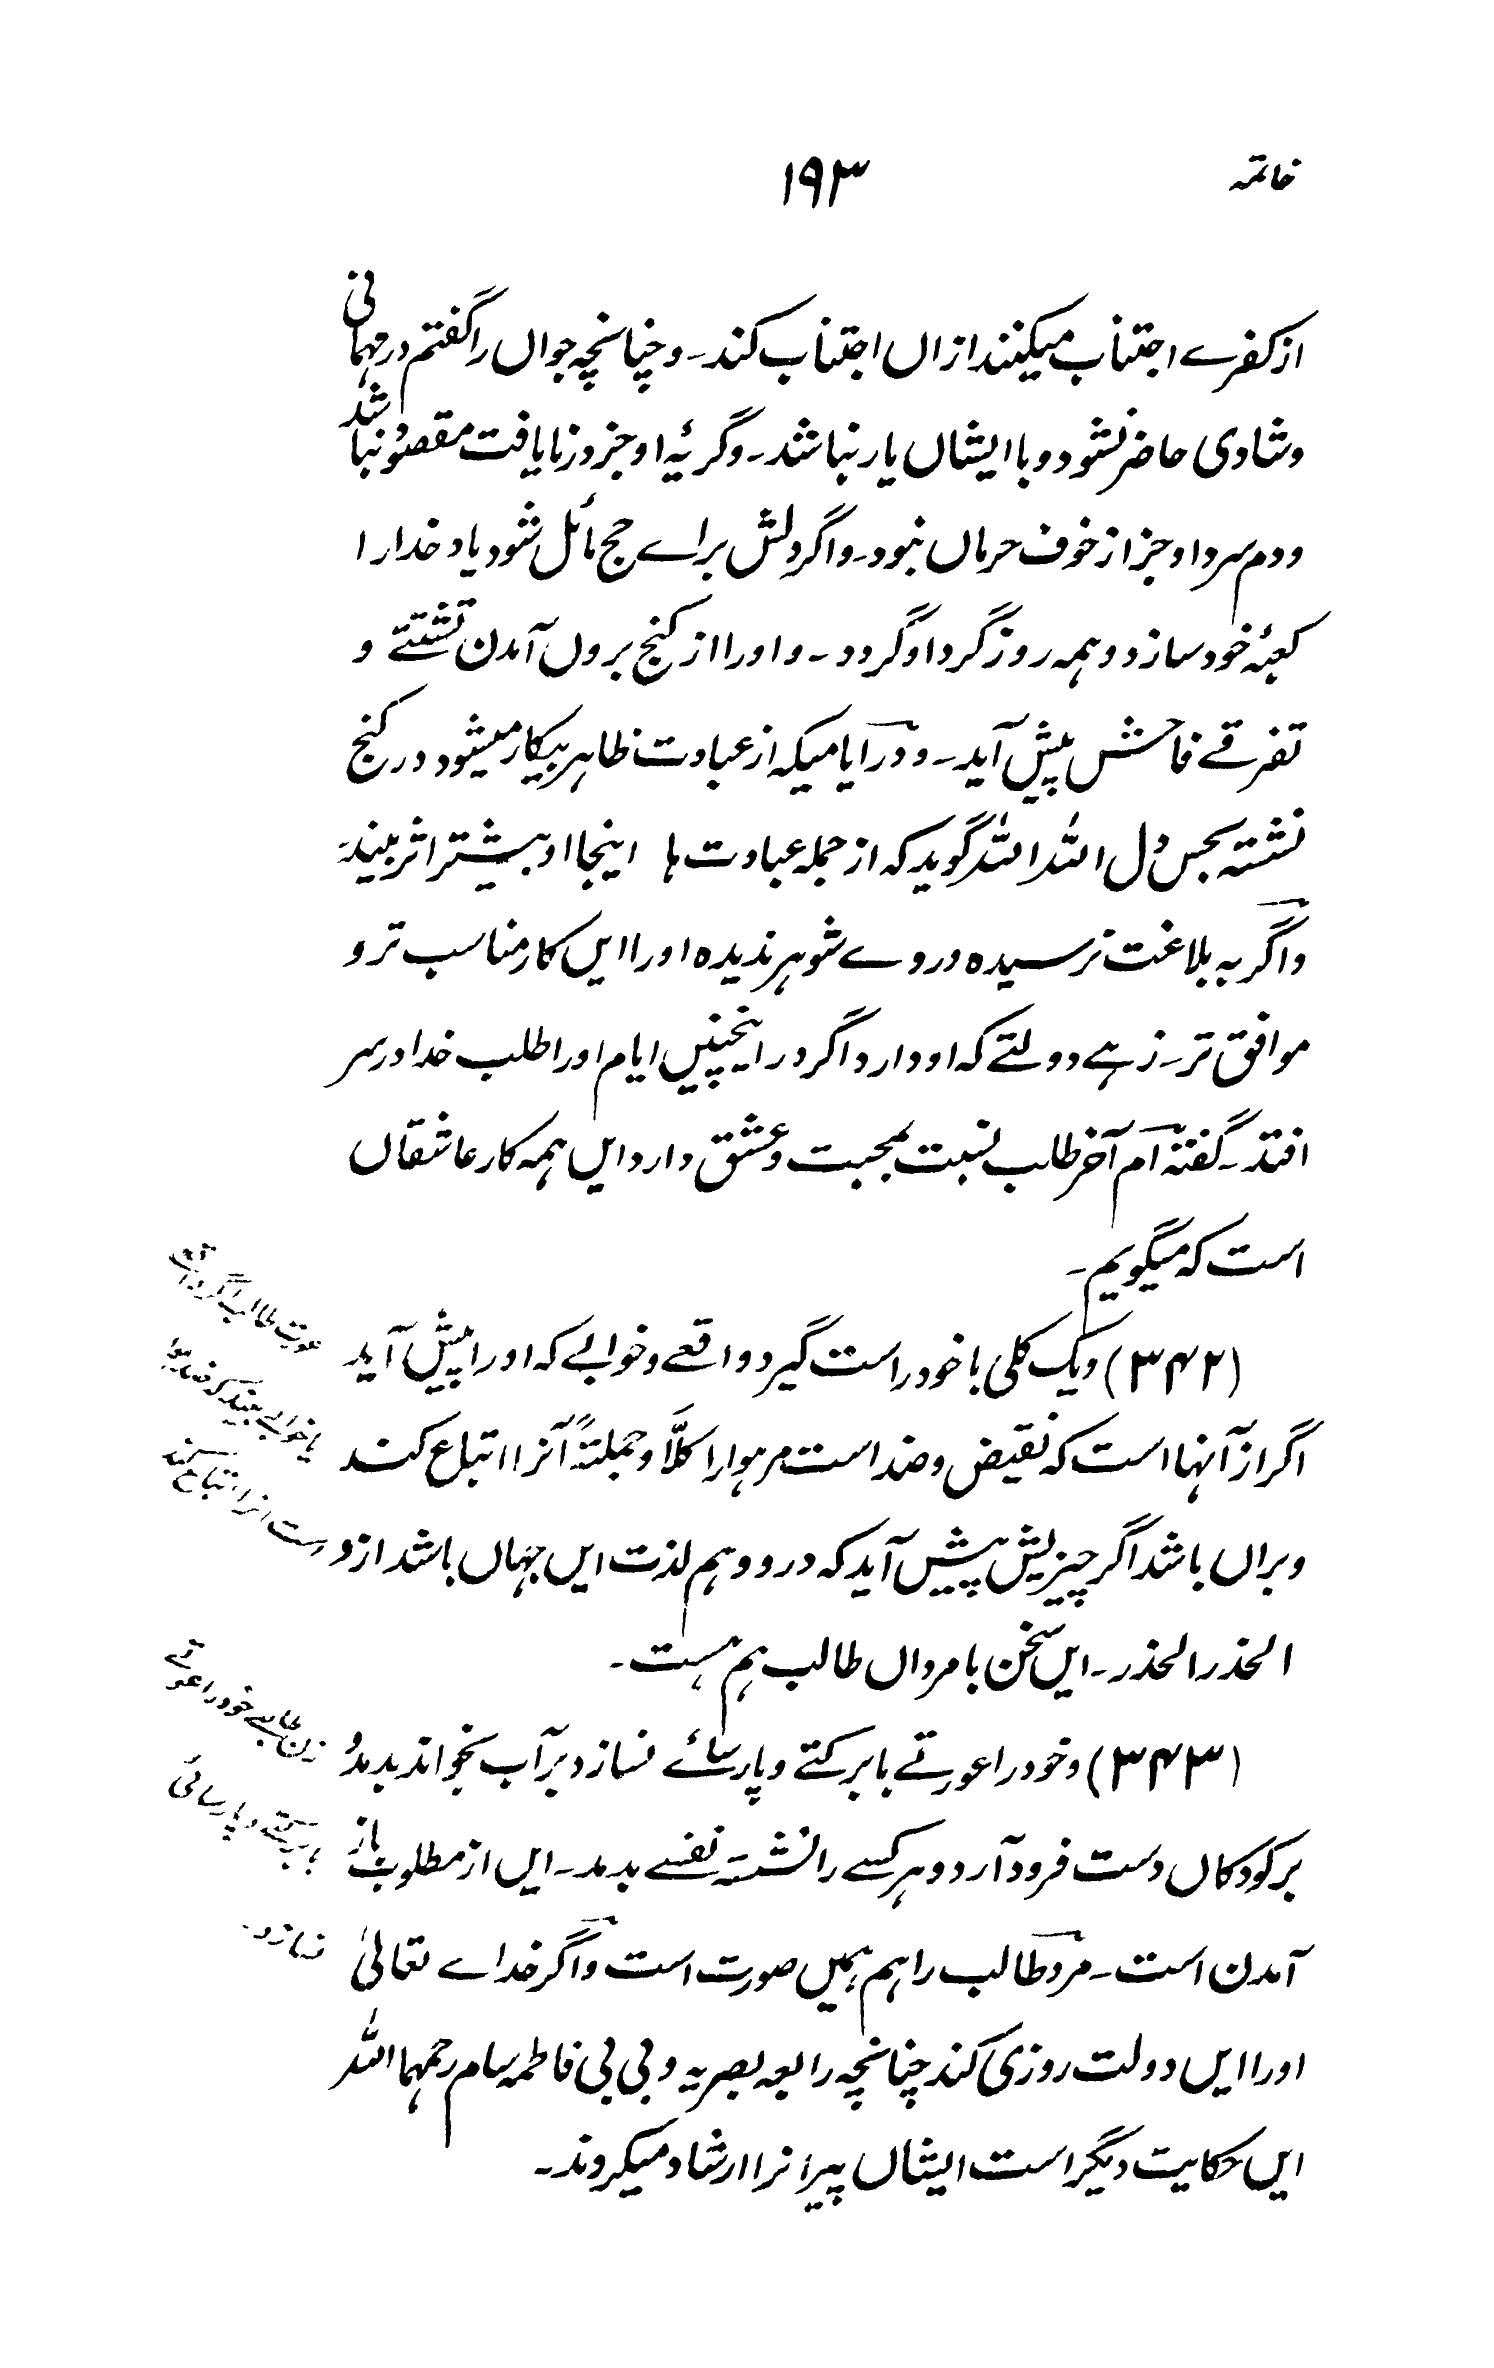 خاتمہ
۱۹۳
از کفرے اجتناب میکنند ازاں اجتناب کند۔ و چنانچہ جواں را گفتم در مہمانی
و شادی حاضر نشود و با ایشاں یار نباشد۔ و گریۂ او جز در نایافت مقصود نباشد
و دم سرد او جز از خوف حرماں نبود۔ و اگر دلش براے حج مائل شود یاد خدا را
کعبۂ خود سازد و ہمہ روز گرد او گردد۔ و او را از کنج بروں آمدن تشتتے و
تفرقے فاحش پیش آید۔ و در ایامیکہ از عبادت ظاہر بیکار میشود در کنج
نشستہ بحبس دل اللہ اللہ گوید کہ از جملہ عبادت ہا اینجا او بیشتر اثر بیند۔
و اگر بہ بلاغت نرسیدہ و روے شوہر ندیدہ او را ایں کار مناسب تر و
موافق تر۔ زہے دولتے کہ او دارد اگر در اینچنیں ایام او را طلب خدا در سر
افتد۔ گفتہ ام آخر طالب نسبت بمحبت و عشق دارد ایں ہمہ کار عاشقاں
است کہ میگویم۔
(۳۴۲) و یک کلی با خود راست گیرد واقعے و خوابے کہ او را پیش آید
اگر از آنہا است کہ نقیض و ضد است مر ہوا را کلاً و جملتہً آنرا اتباع کند
و براں باشد اگر چیزیش پیش آید کہ در و وہم لذت ایں جہاں باشد ازو
الحذر الحذر۔ ایں سخن با مرداں طالب ہم ہست۔
عورت طالب اگر واقعہ
یا خوابے بیند کہ ضد ہوا
ست آنرا اتباع کند
(۳۴۳) و خود را عورتے با برکتے و پارسائے نسازد بر آب بخواند بدمد و
بر کودکاں دست فرود آرد و ہر کسے را نشستہ نفسے بدمد۔ ایں از مطلوب باز
آمدن است۔ مرد طالب را ہم ہمیں صورت است و اگر خداے تعالیٰ
او را ایں دولت روزی کند چنانچہ رابعہ بصریہ و بی بی فاطمہ سام رحمہما اللہ
ایں حکایت دیگر است ایشاں پیرانرا ارشاد میکردند۔
زن طالبے خود را عورتے
با برکتے و پارسائی
نسازد۔